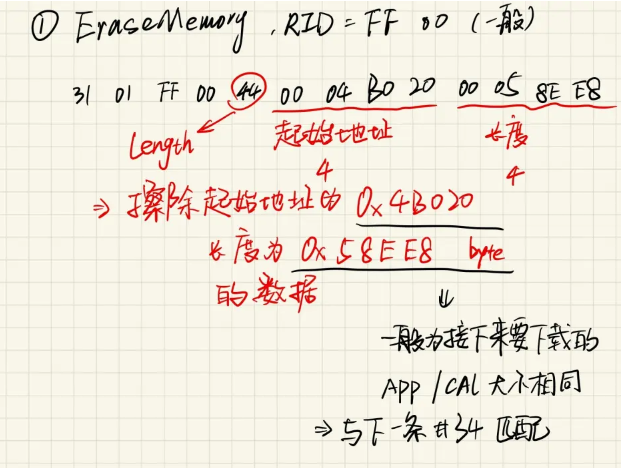 ① EraseMemory , RID = FF 00 (一般)
31 01 FF 00 44 00 04 B0 20 00 05 8E E8
Length 起始地址 长度
4 4
⇒ 擦除起始地址为 0x4B020
长度为 0x58EE8 byte
的数据
↓
一般为接下来要下载的
APP / CAL 大小相同
⇒ 与下一条 #34 匹配